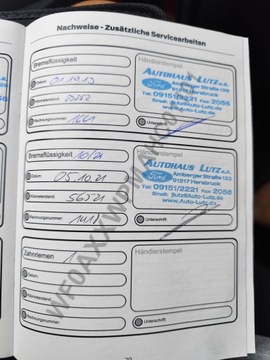 Nachweise - Zusätzliche Servicearbeiten
Bremsflüssigkeit
Händlerstempel
Datum:
01.10.19
Kilometerstand:
Rechnungsnummer:
AUTOHAUS LUTZ e.K.
Ford
Amberger Straße 123
91217 Hersbruck
Tel: 09151/2221 Fax: 2056
Email: jlutz@Auto-Lutz.de
Unterschrift
Bremsflüssigkeit 10/21
Händlerstempel
Datum:
05.10.21
Kilometerstand:
56521
Rechnungsnummer:
AUTOHAUS LUTZ e.K.
Ford
Amberger Straße 123
91217 Hersbruck
Tel: 09151/2221 Fax: 2056
Email: jlutz@Auto-Lutz.de
Unterschrift
Zahnriemen
Händlerstempel
Datum:
Kilometerstand:
Rechnungsnummer:
Unterschrift